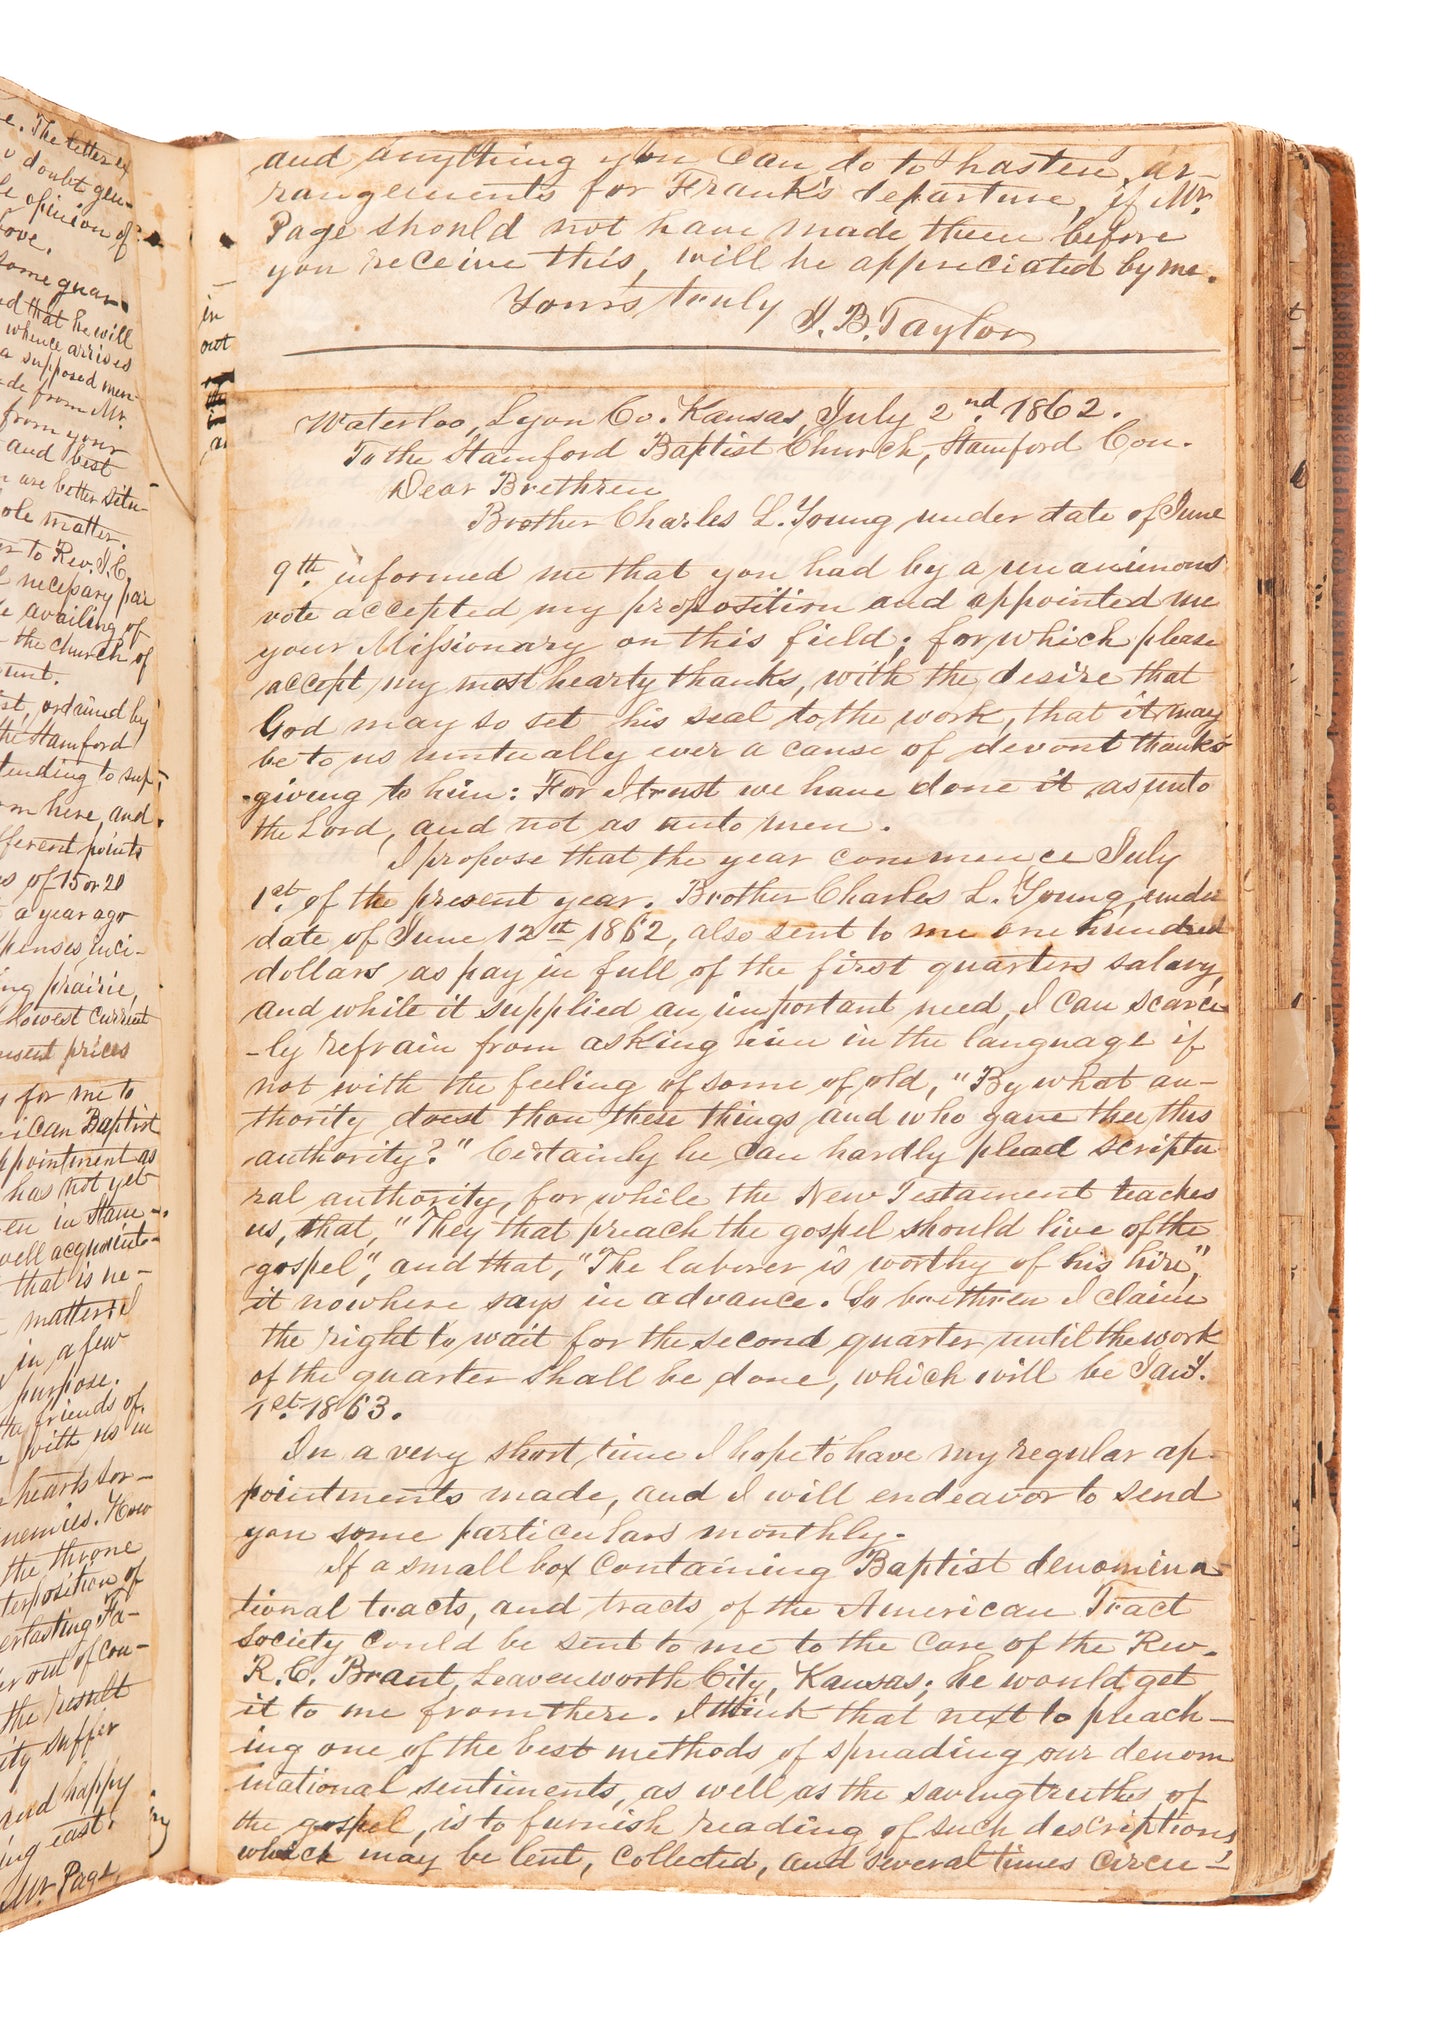 e. The letter ex
doubt gen-
opinion of
ove.
some guar-
d that he will
whence arrives
a supposed men-
de from Mr.
from your
and best
are better situ-
ole matter.
er to Rev. J. C.
necessary par
e availing of
the church of
ount.
st, ordained by
the Stamford
tending to sup-
om here, and
fferent points
s of 15 or 20
a year ago
penses, inci-
ing prairie,
lowest current
nsent prices
for me to
ican Baptist
ppointment as
has not yet
en in Stam-
well acquainte-
that is ne-
matter I
in a few
purpose.
the friends of
with us in
hearts sor-
nemies. How
the throne
terposition of
erlasting Fa-
er out of con-
the result
ity suffer
and happy
ing east.
Mr. Page,
in
out
ing
and anything you can do to hasten, ar-
rangements for Frank's departure, if Mr.
Page should not have made them before
you receive this, will be appreciated by me.
Yours truly J. B. Taylor
Waterloo, Lyon Co. Kansas, July 2nd. 1862.
To the Stamford Baptist Church, Stamford Con.
Dear Brethren
Brother Charles L. Young under date of June
9th. informed me that you had by a unanimous
vote accepted my proposition and appointed me
your Missionary on this field; for which please
accept my most hearty thanks, with the desire that
God may so set his seal to the work, that it may
be to us mutually ever a cause of devout thanks-
-giving to him: For I trust we have done it as unto
the Lord, and not as unto men.
I propose that the year commence July
1st. of the present year. Brother Charles L. Young, under
date of June 12th 1862, also sent to me one hundred
dollars as pay in full of the first quarters salary,
and while it supplied an important need, I can scarce-
-ly refrain from asking him in the language if
not with the feeling of some of old, "By what au-
thority doest thou these things and who gave thee this
authority?" Certainly he can hardly plead scriptu
ral authority, for while the New Testament teaches
us, that, "They that preach the gospel should live of the
gospel", and that, "The laborer is worthy of his hire,"
it nowhere says in advance. So brethren I claim
the right to wait for the second quarter until the work
of the quarter shall be done, which will be Jan'y.
1st. 1863.
In a very short time I hope to have my regular ap-
pointments made, and I will endeavor to send
you some particulars monthly.
If a small box containing Baptist denomina-
tional tracts, and tracts of the American Tract
Society could be sent to me to the care of the Rev.
R. C. Brant, Leavenworth City, Kansas; he would get
it to me from there. I think that next to preach-
ing one of the best methods of spreading our denom
inational sentiments, as well as the saving truths of
the gospel, is to furnish reading of such descriptions
which may be lent, collected, and several times circu-